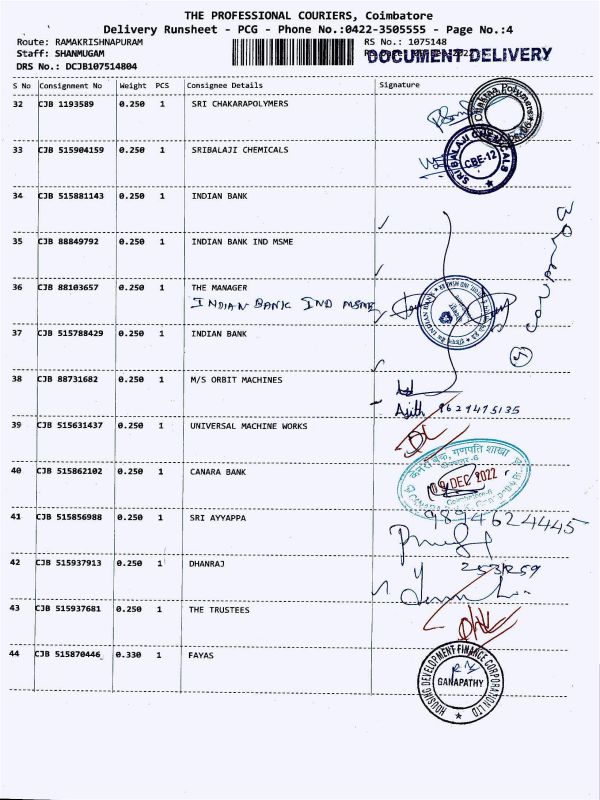 THE PROFESSIONAL COURIERS, Coimbatore
Delivery Runsheet - PCG - Phone No.:0422-3505555 - Page No.:4
Route: RAMAKRISHNAPURAM
RS No.: 1075148
Staff: SHANMUGAM
DOCUMENT DELIVERY
DRS No.: DCJB107514804
S No Consignment No Weight PCS Consignee Details Signature
32 CJB 1193589 0.250 1 SRI CHAKARAPOLYMERS
33 CJB 515904159 0.250 1 SRIBALAJI CHEMICALS
SRIBALAJI CHEMICALS
CBE-12
34 CJB 515881143 0.250 1 INDIAN BANK
35 CJB 88849792 0.250 1 INDIAN BANK IND MSME
36 CJB 88103657 0.250 1 THE MANAGER
INDIAN BANK IND MSME
INDIAN BANK
37 CJB 515788429 0.250 1 INDIAN BANK
5
38 CJB 88731682 0.250 1 M/S ORBIT MACHINES
Ajith 9629495135
39 CJB 515631437 0.250 1 UNIVERSAL MACHINE WORKS
40 CJB 515862102 0.250 1 CANARA BANK
गणपति शाखा
09 DEC 2022
41 CJB 515856988 0.250 1 SRI AYYAPPA
9894624445
42 CJB 515937913 0.250 1 DHANRAJ
43 CJB 515937681 0.250 1 THE TRUSTEES
44 CJB 515870446 0.330 1 FAYAS
HOUSING DEVELOPMENT FINANCE CORPORATION LTD
GANAPATHY